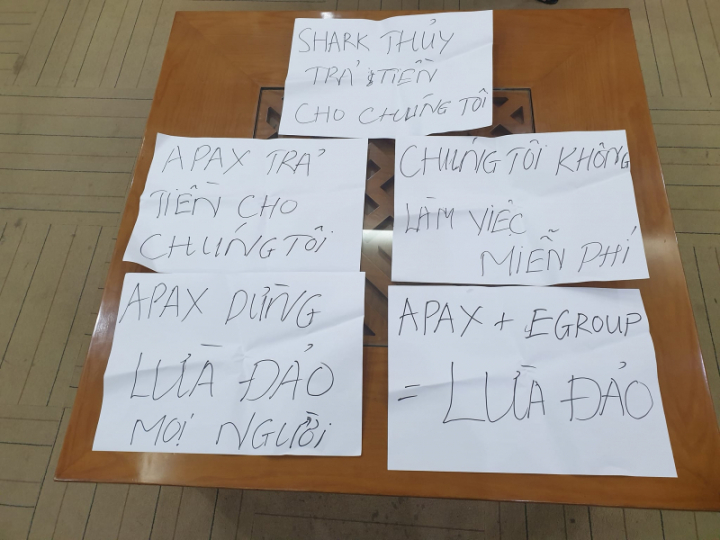 SHARK THỦY
TRẢ TIỀN
CHO CHÚNG TÔI
APAX TRẢ
TIỀN CHO
CHÚNG TÔI
CHÚNG TÔI KHÔNG
LÀM VIỆC
MIỄN PHÍ
APAX DỪNG
LỪA ĐẢO
MỌI NGƯỜI
APAX + EGROUP
= LỪA ĐẢO